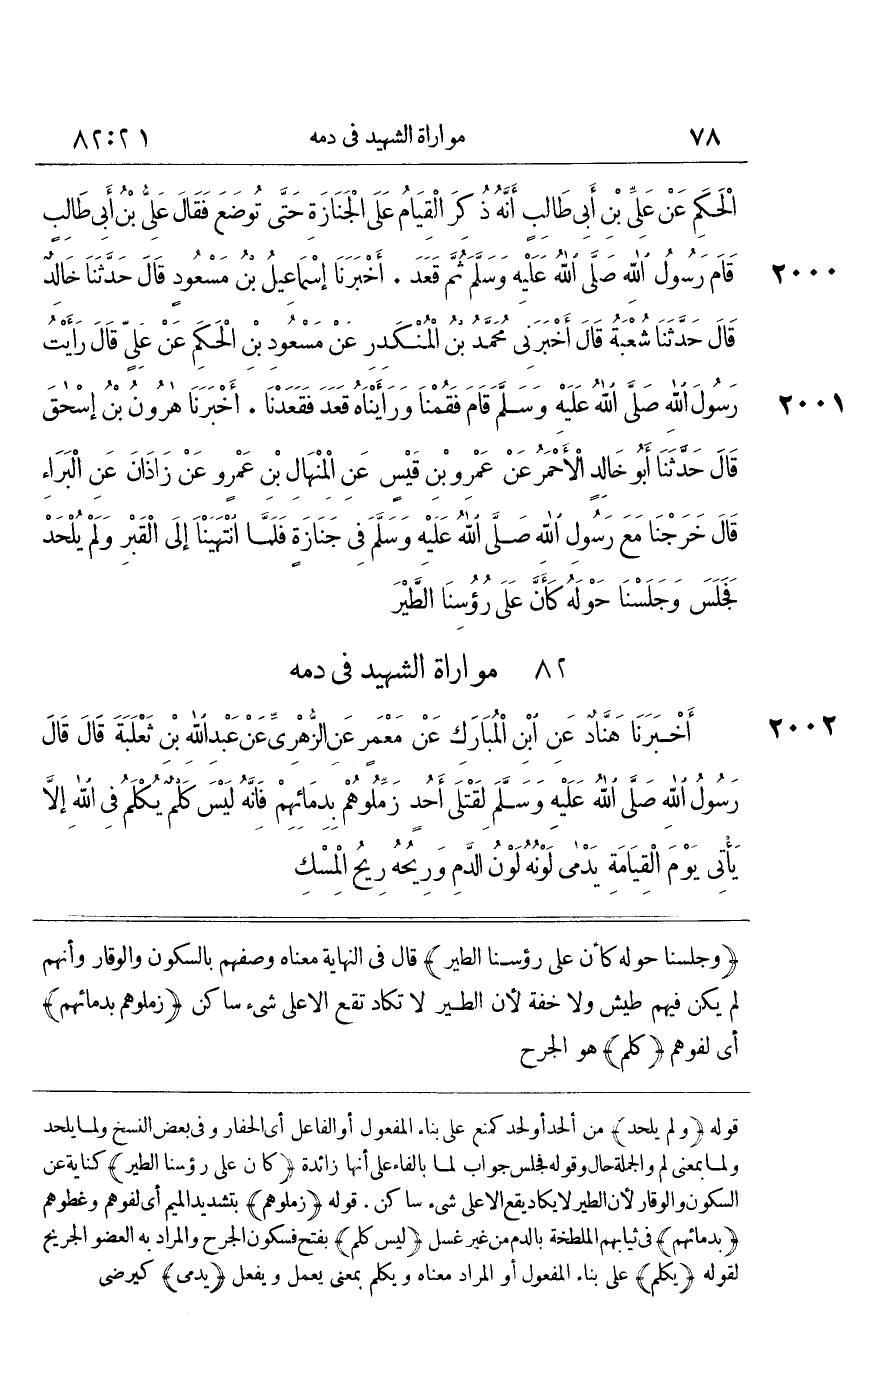 ٧٨ مواراة الشهيد فى دمه ٢١:٨٢
الْحَكَمِ عَنْ عَلِيِّ بْنِ أَبِى طَالِبٍ أَنَّهُ ذُكِرَ الْقِيَامُ عَلَى الْجَنَازَةِ حَتَّى تُوضَعَ فَقَالَ عَلِىُّ بْنُ أَبِى طَالِبٍ
٢٠٠٠ قَامَ رَسُولُ اللهِ صَلَّى اللهُ عَلَيْهِ وَسَلَّمَ ثُمَّ قَعَدَ . أَخْبَرَنَا إِسْمَاعِيلُ بْنُ مَسْعُودٍ قَالَ حَدَّثَنَا خَالِدٌ
قَالَ حَدَّثَنَا شُعْبَةُ قَالَ أَخْبَرَنِى مُحَمَّدُ بْنُ الْمُنْكَدِرِ عَنْ مَسْعُودِ بْنِ الْحَكَمِ عَنْ عَلِيٍّ قَالَ رَأَيْتُ
٢٠٠١ رَسُولَ اللهِ صَلَّى اللهُ عَلَيْهِ وَسَلَّمَ قَامَ فَقُمْنَا وَرَأَيْنَاهُ قَعَدَ فَقَعَدْنَا . أَخْبَرَنَا هٰرُونُ بْنُ إِسْحٰقَ
قَالَ حَدَّثَنَا أَبُو خَالِدٍ الْأَحْمَرُ عَنْ عَمْرِو بْنِ قَيْسٍ عَنِ الْمِنْهَالِ بْنِ عَمْرٍو عَنْ زَاذَانَ عَنِ الْبَرَاءِ
قَالَ خَرَجْنَا مَعَ رَسُولِ اللهِ صَلَّى اللهُ عَلَيْهِ وَسَلَّمَ فِى جَنَازَةٍ فَلَمَّا انْتَهَيْنَا إِلَى الْقَبْرِ وَلَمْ يُلْحَدْ
فَجَلَسَ وَجَلَسْنَا حَوْلَهُ كَأَنَّ عَلَى رُؤُسِنَا الطَّيْرَ
٨٢ مواراة الشهيد فى دمه
٢٠٠٢ أَخْبَرَنَا هَنَّادٌ عَنِ ابْنِ الْمُبَارَكِ عَنْ مَعْمَرٍ عَنِ الزُّهْرِىِّ عَنْ عَبْدِ اللهِ بْنِ ثَعْلَبَةَ قَالَ قَالَ
رَسُولُ اللهِ صَلَّى اللهُ عَلَيْهِ وَسَلَّمَ لِقَتْلَى أُحُدٍ زَمِّلُوهُمْ بِدِمَائِهِمْ فَإِنَّهُ لَيْسَ كَلْمٌ يُكْلَمُ فِى اللهِ إِلَّا
يَأْتِى يَوْمَ الْقِيَامَةِ يَدْمٰى لَوْنُهُ لَوْنُ الدَّمِ وَرِيحُهُ رِيحُ الْمِسْكِ
﴿وجلسنا حوله كأن على رؤسنا الطير﴾ قال فى النهاية معناه وصفهم بالسكون والوقار وأنهم
لم يكن فيهم طيش ولا خفة لأن الطير لا تكاد تقع الا على شىء ساكن ﴿زملوهم بدمائهم﴾
أى لفوهم ﴿كلم﴾ هو الجرح
قوله ﴿ولم يلحد﴾ من ألحد أولحد كمنع على بناء المفعول أو الفاعل أى الحفار وفى بعض النسخ ولما يلحد
ولما بمعنى لم والجملة حال وقوله فجلس جواب لما بالفاء على أنها زائدة ﴿كان على رؤسنا الطير﴾ كناية عن
السكون والوقار لأن الطير لا يكاد يقع الا على شىء ساكن . قوله ﴿زملوهم﴾ بتشديد الميم أى لفوهم وغطوهم
﴿بدمائهم﴾ فى ثيابهم الملطخة بالدم من غير غسل ﴿ليس كلم﴾ بفتح فسكون الجرح والمراد به العضو الجريح
لقوله ﴿يكلم﴾ على بناء المفعول أو المراد معناه ويكلم بمعنى يعمل ويفعل ﴿يدمى﴾ كيرضى